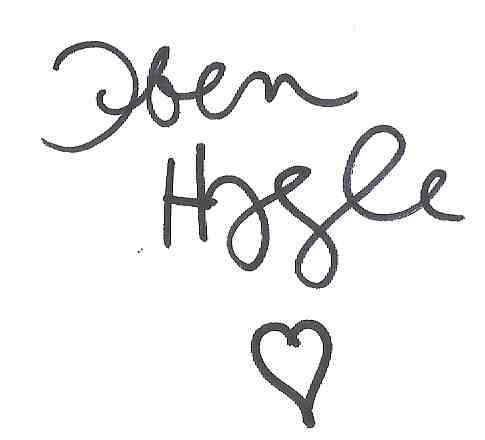 Iben
Hjejle